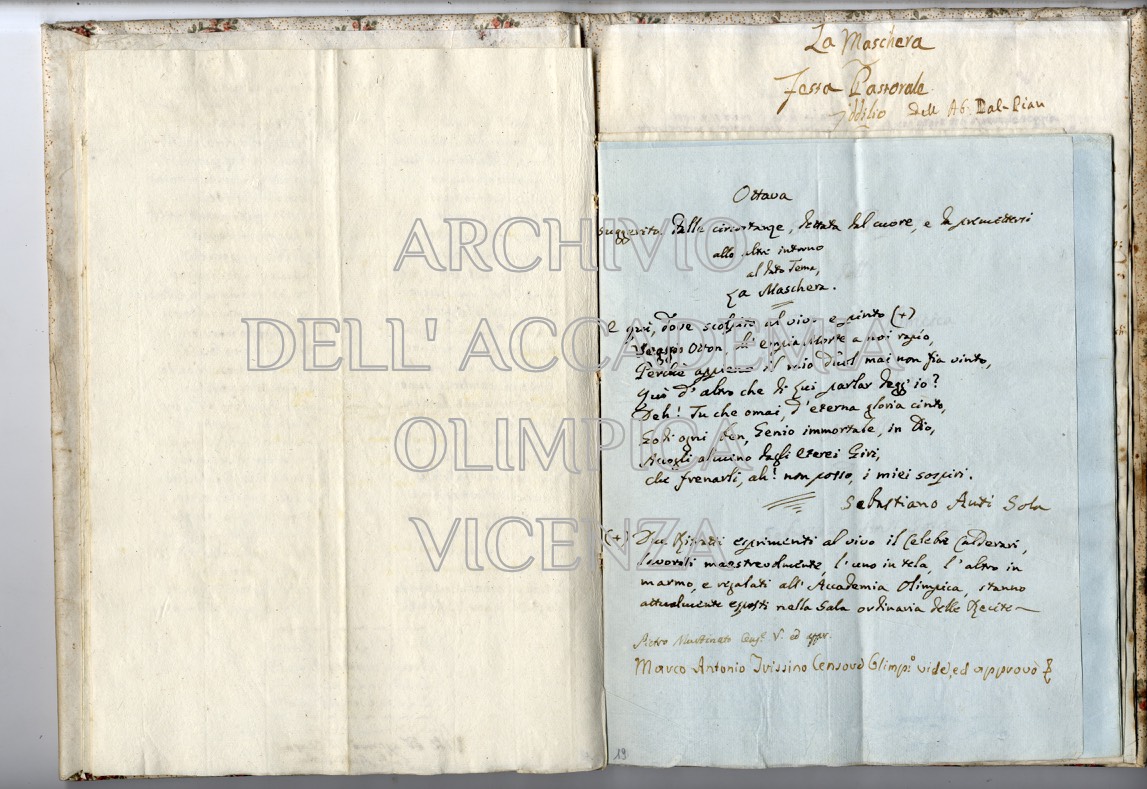 La Maschera
Festa Pastorale
Idilio dell Ab. Dal-Pian
Ottava
suggerita dalle circostanze, dettata dal cuore, e da premettersi
alle altre intorno
al dato Tema,
La Maschera.
E qui, dove scolpito al vivo e pinto (+)
Veggo Otton che empia Morte a noi rapio,
Perchè appieno il mio duol mai non sia vinto,
Qui d'altro che di Lui parlar degg'io?
Deh! Tu che omai, d'eterna gloria cinto,
Godi ogni Ben, Genio immortale, in Dio,
Accogli almeno dagli eterei Giri,
che frenarli, ah! non posso, i miei sospiri.
Sebastiano Anti Sola
(+) Due Ritratti esprimenti al vivo il celebre Calderari,
lavorati maestrevolmente, l'uno in tela, l'altro in
marmo, e regalati all'Accademia Olimpica, stanno
attualmente esposti nella Sala ordinaria delle Recite
Pietro Cens.e V. ed appr.
Marco Antonio Trissino Censore Olimp.o vide, ed approvò
19
ARCHIVIO
DELL' ACCADEMIA
OLIMPICA
VICENZA